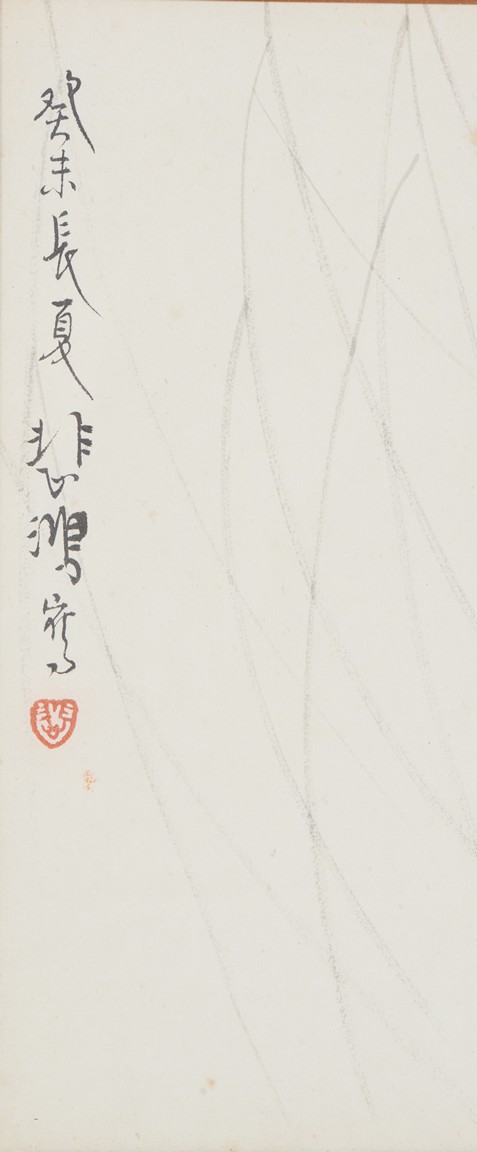 癸未長夏悲鴻寫